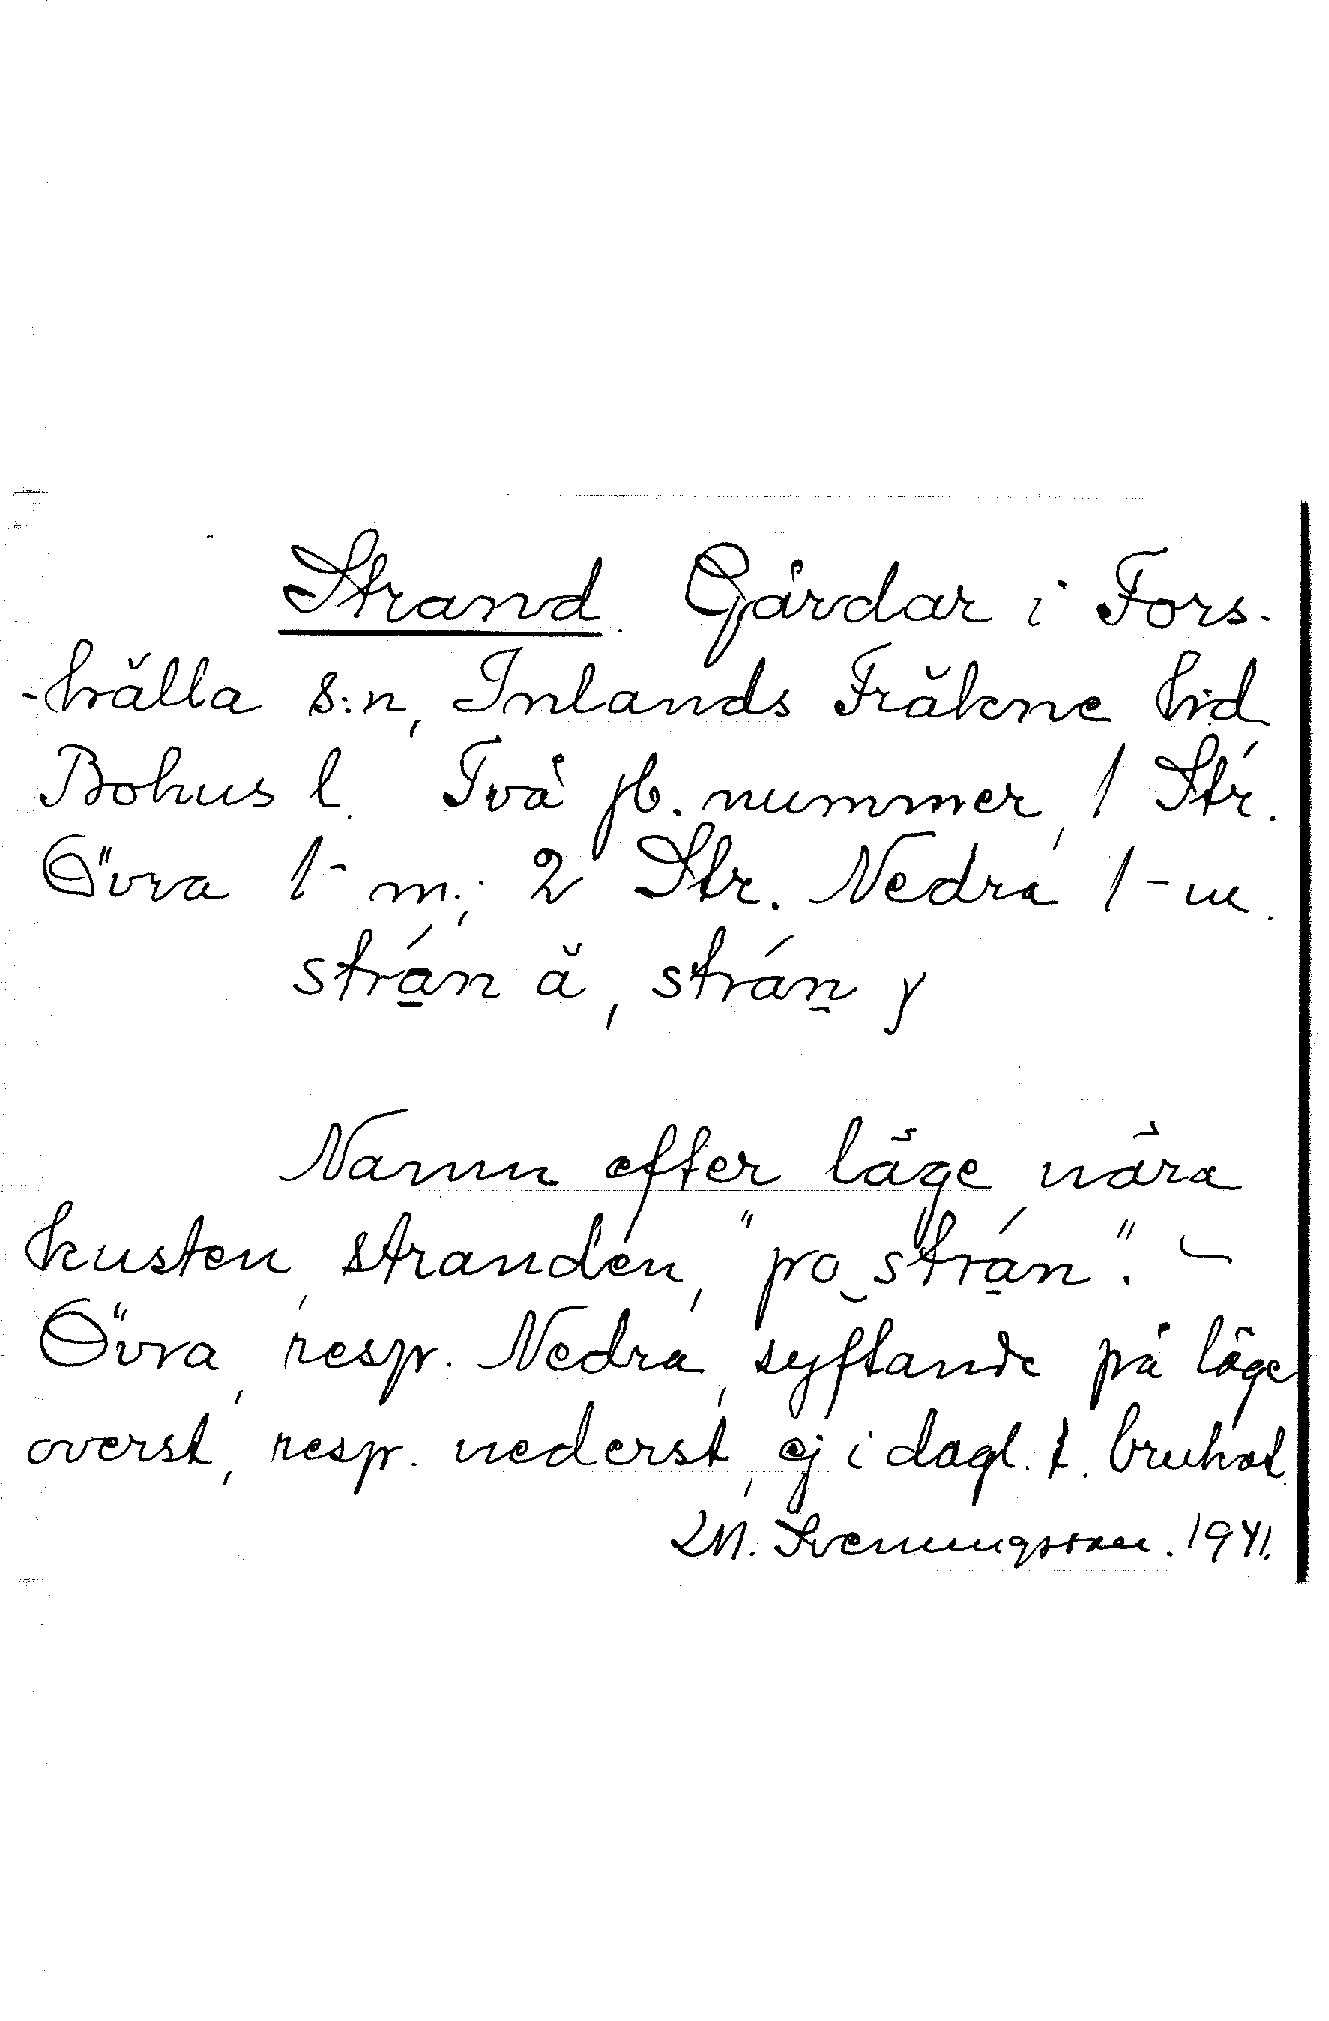 Strand. Gårdar i Fors-
-hälla s:n, Inlands Fräkne hd
Bohus l. Två jb. nummer, 1 Str.
Övra 1 m.; 2 Str. Nedra 1 m.
strán ă, strán y
Namn efter läge nära
kusten, stranden, "po strán". –
Övra, resp. Nedra, syftande på läge
överst, resp. nederst, ej i dagl. t. brukat
M. Svenungsson. 1941.